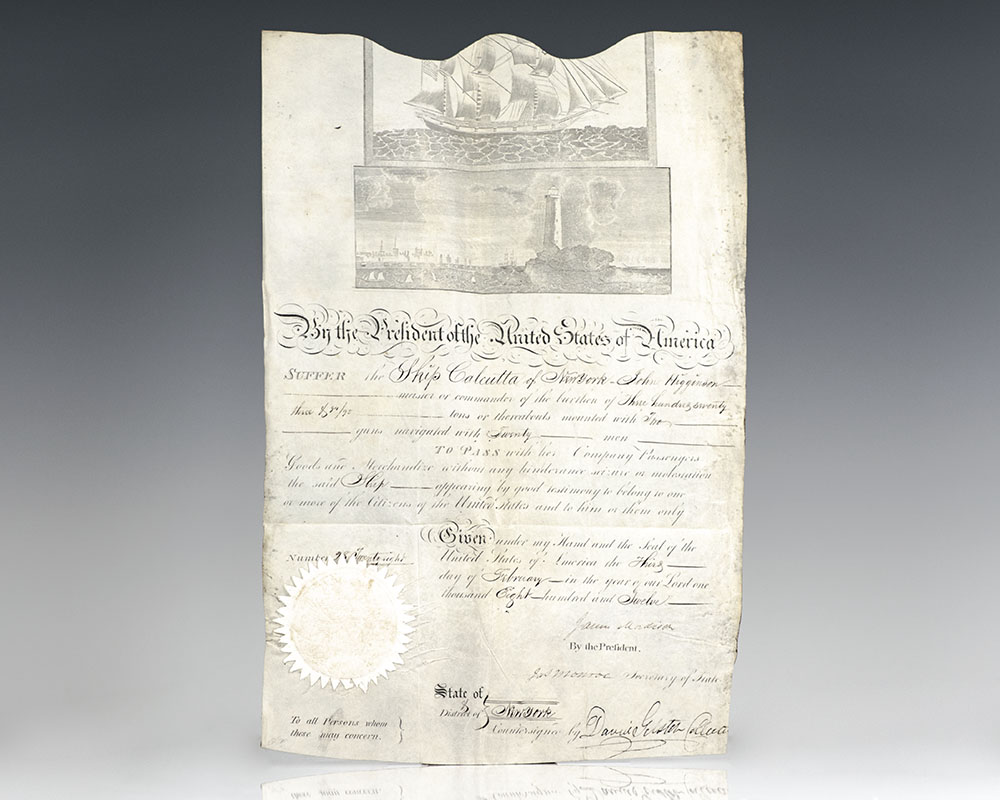 By the President of the United States of America
SUFFER the Ship Calcutta of New York - John Higginson
master or commander of the burthen of Three hundred twenty
three & /95 tons or thereabouts mounted with Two
guns navigated with Twenty men
TO PASS with her Company Passengers
Goods and Merchandize without any hinderance seizure or molestation
the said Ship appearing by good testimony to belong to one
or more of the Citizens of the United States and to him or them only
Given under my Hand and the Seal of the
Number 28 Twenty eight
United States of America the Third
day of February in the year of our Lord one
thousand Eight hundred and Twelve
James Madison
By the President.
Jas Monroe Secretary of State
State of
District of New York
Countersigned by David Gelston Collector
To all Persons whom
these may concern.